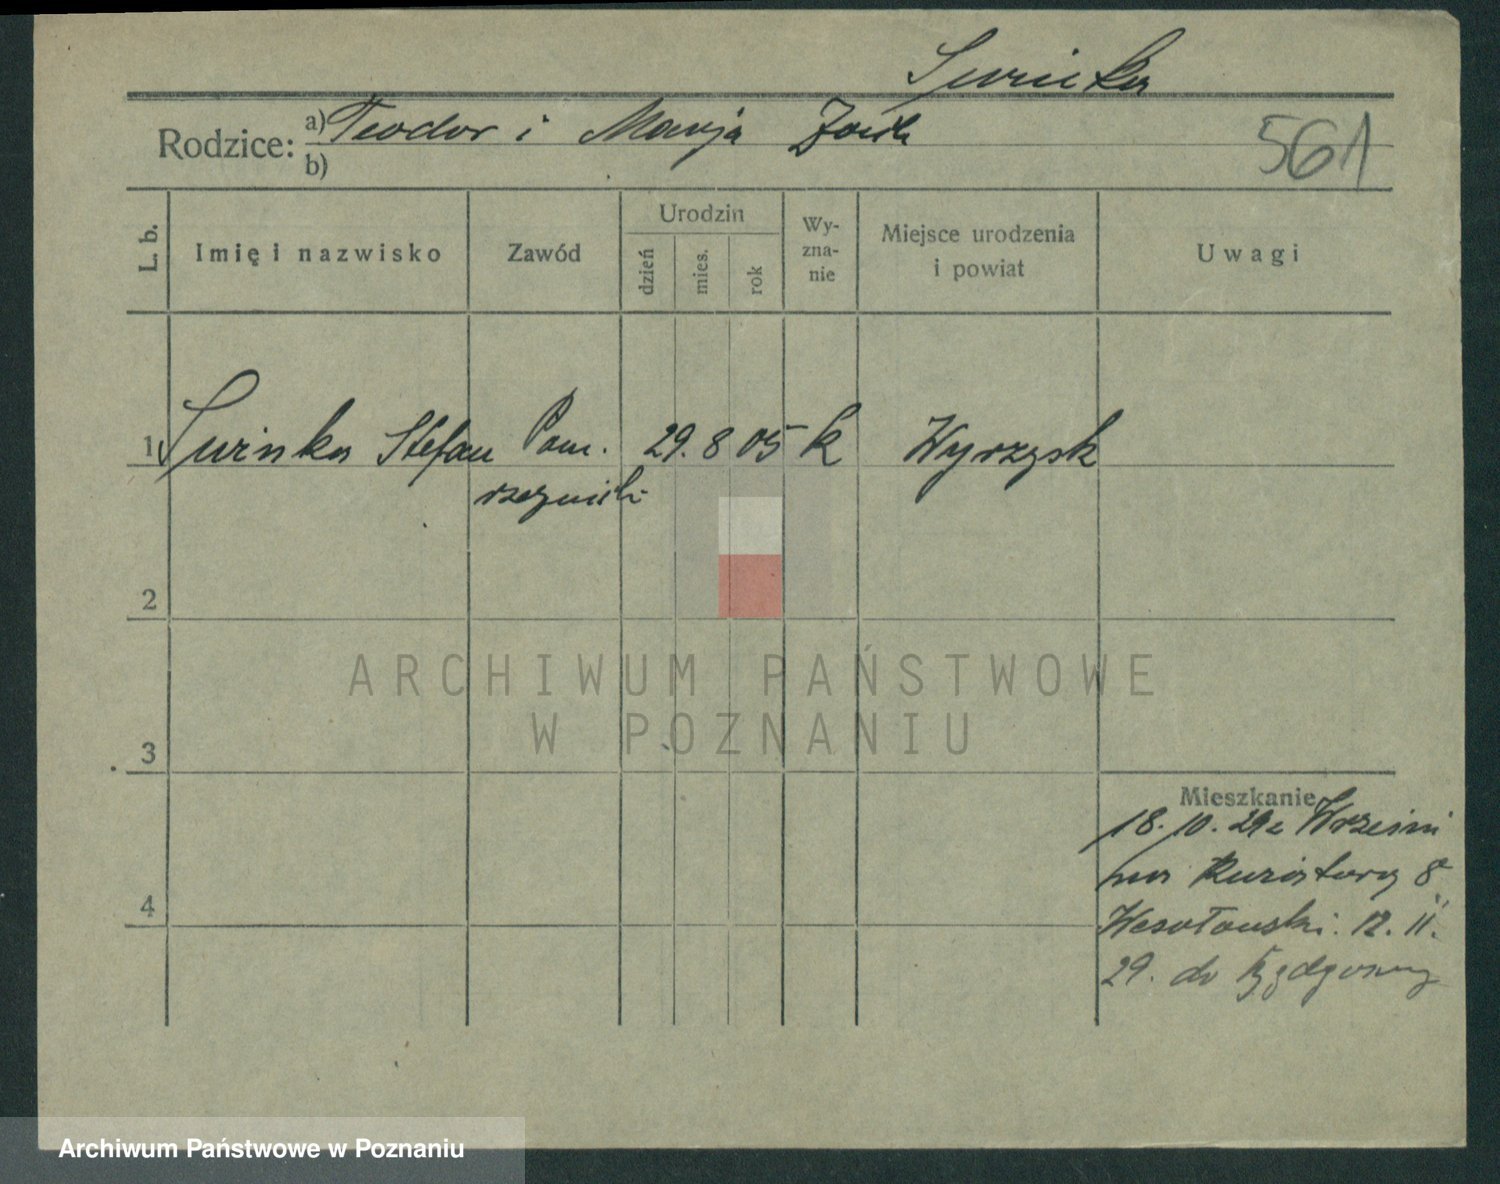 Swinka
Rodzice: a) Teodor i Marja
b)
561
L. b.
Imię i nazwisko
Zawód
Urodzin
dzień
mies.
rok
Wy-
zna-
nie
Miejsce urodzenia
i powiat
Uwagi
1 Swinka Stefan Pom. 29. 8 05 k Wyrzysk
rzeźnicki
2
3
4
Mieszkanie
18. 10. 29 z Wrześni
na 8
Wesołowski. 12. 11.
29. do Bydgoszczy
ARCHIWUM PAŃSTWOWE
W POZNANIU
Archiwum Państwowe w Poznaniu